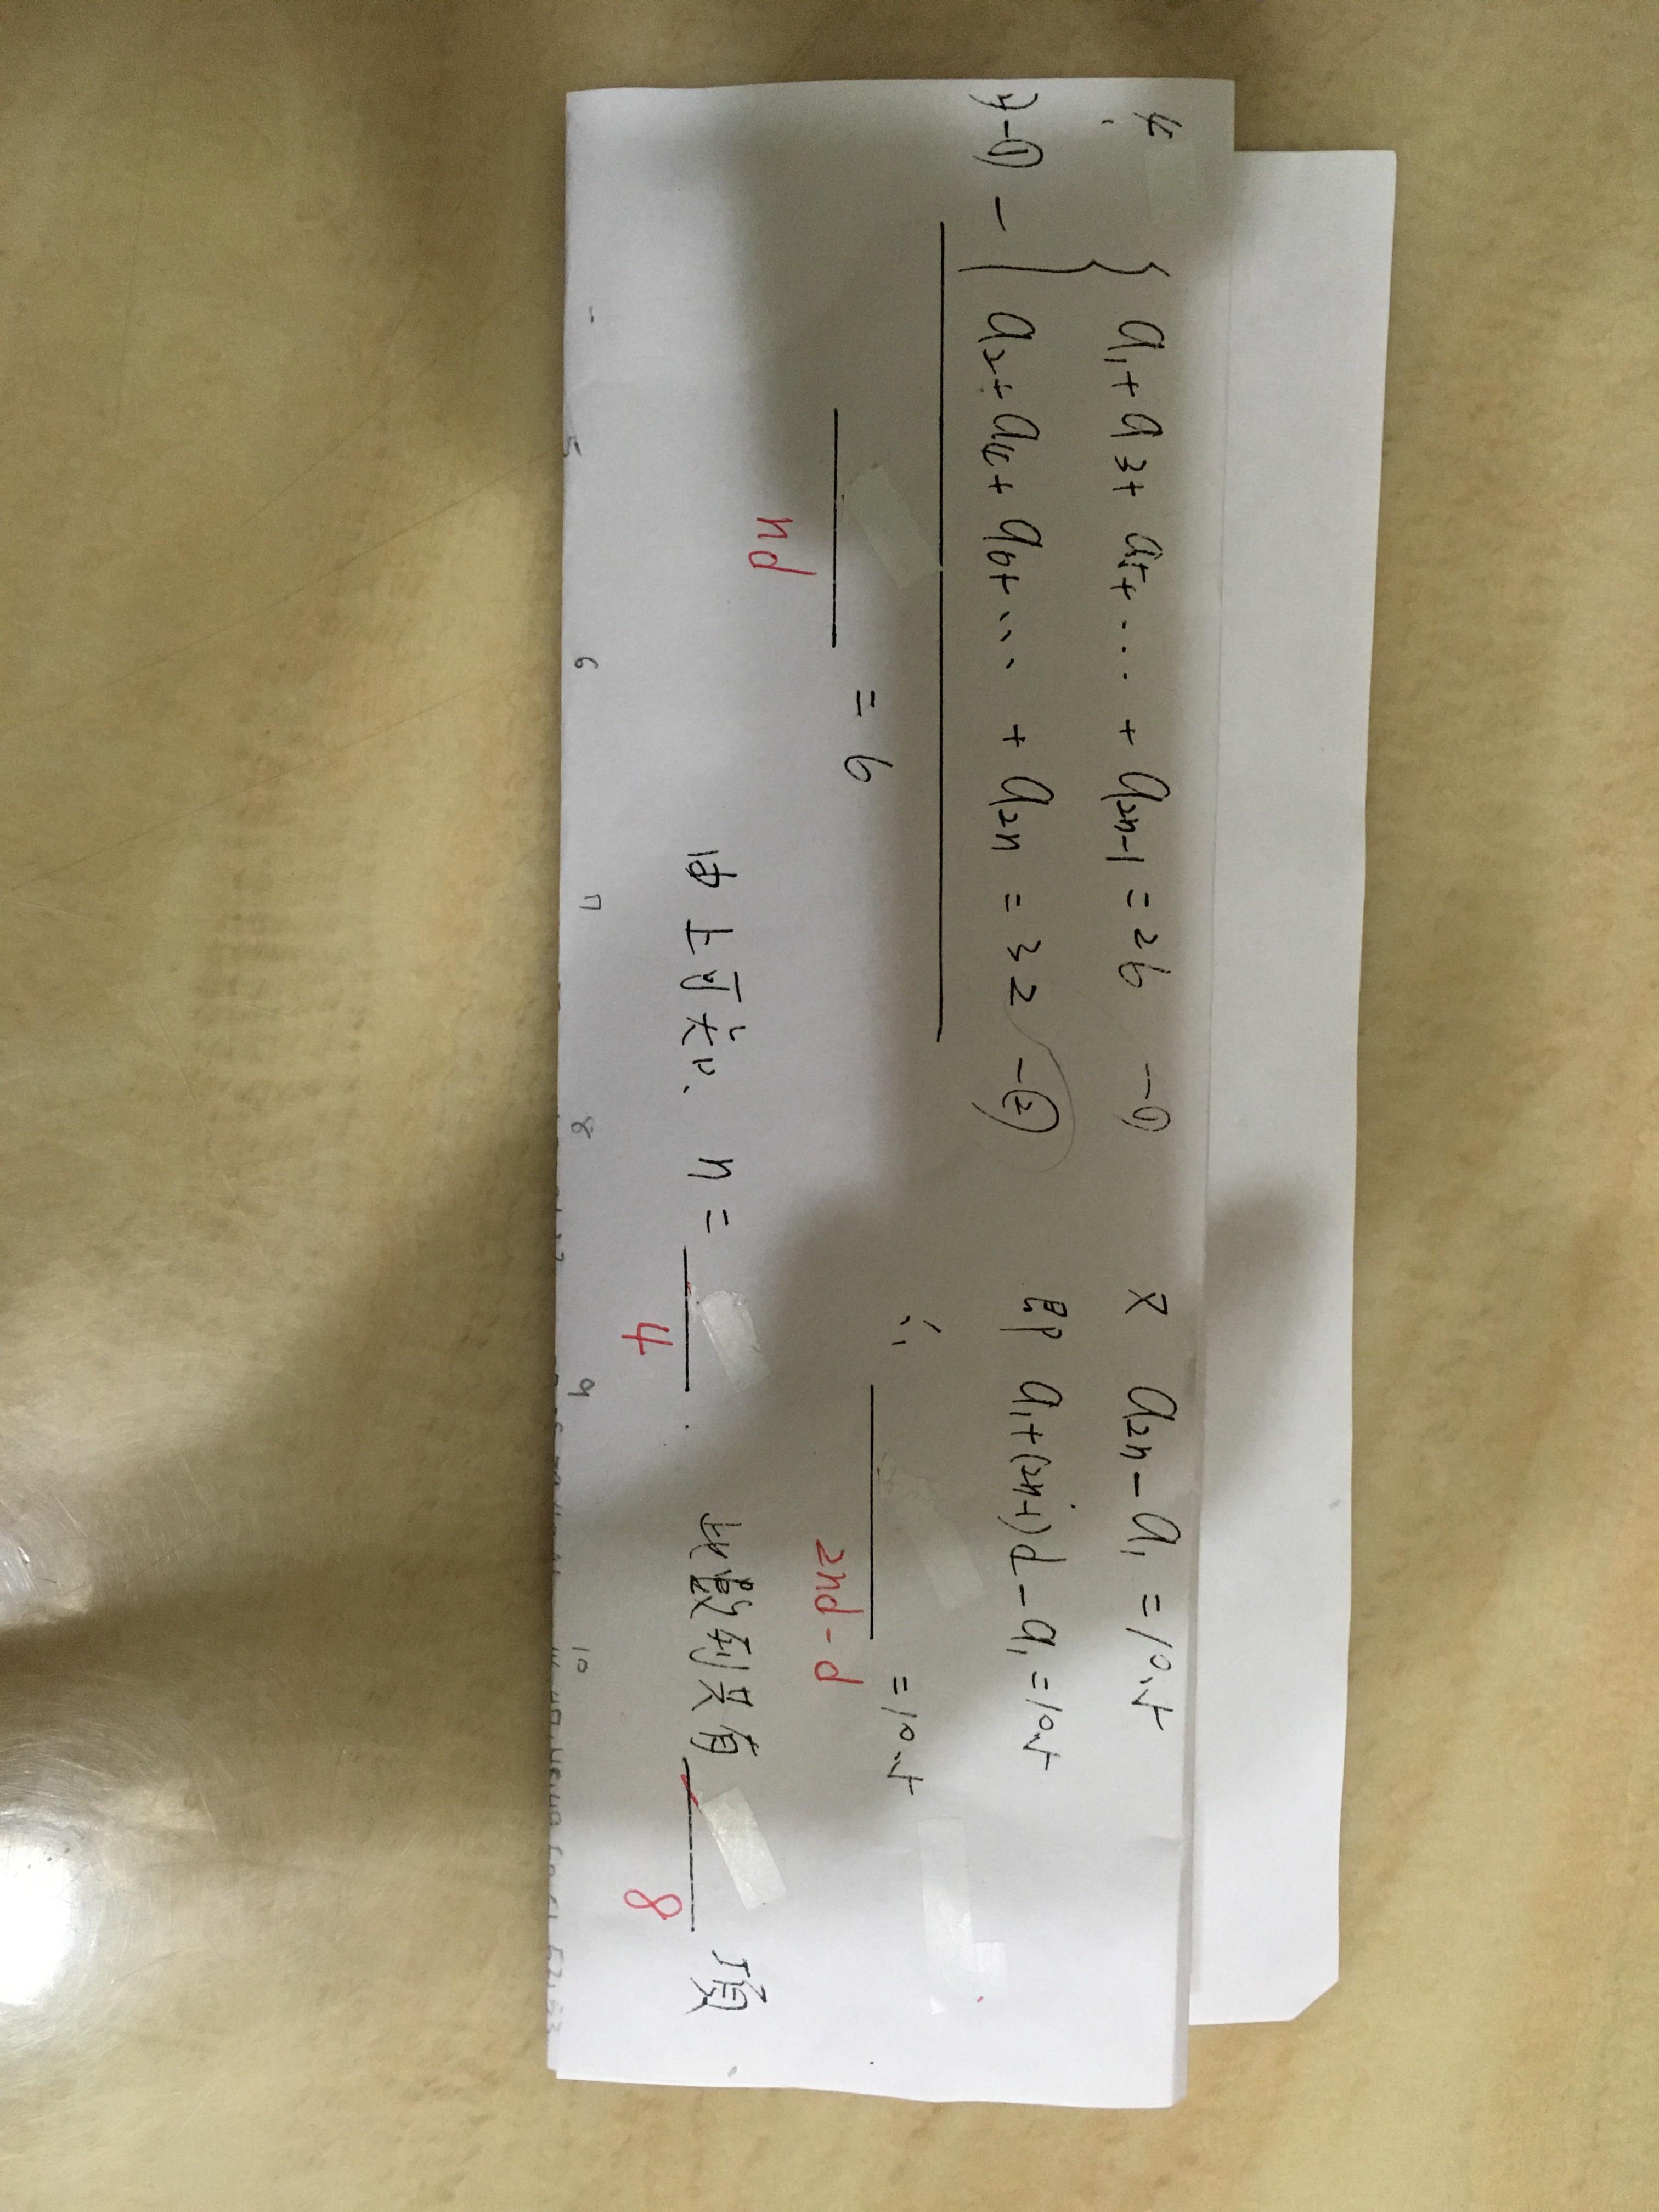 4.
{ a₁+a₃+a₅+...+a₂ₙ₋₁=26 —①
②-① - a₂+a₄+a₆+...+a₂ₙ=32 —②
又 a₂ₙ-a₁=10.5
即 a₁+(2n-1)d-a₁=10.5
nd =6
∴ 2nd-d =10.5
由上可知, n= 4 . 此數列共有 8 項
5 6 7 8 9 10